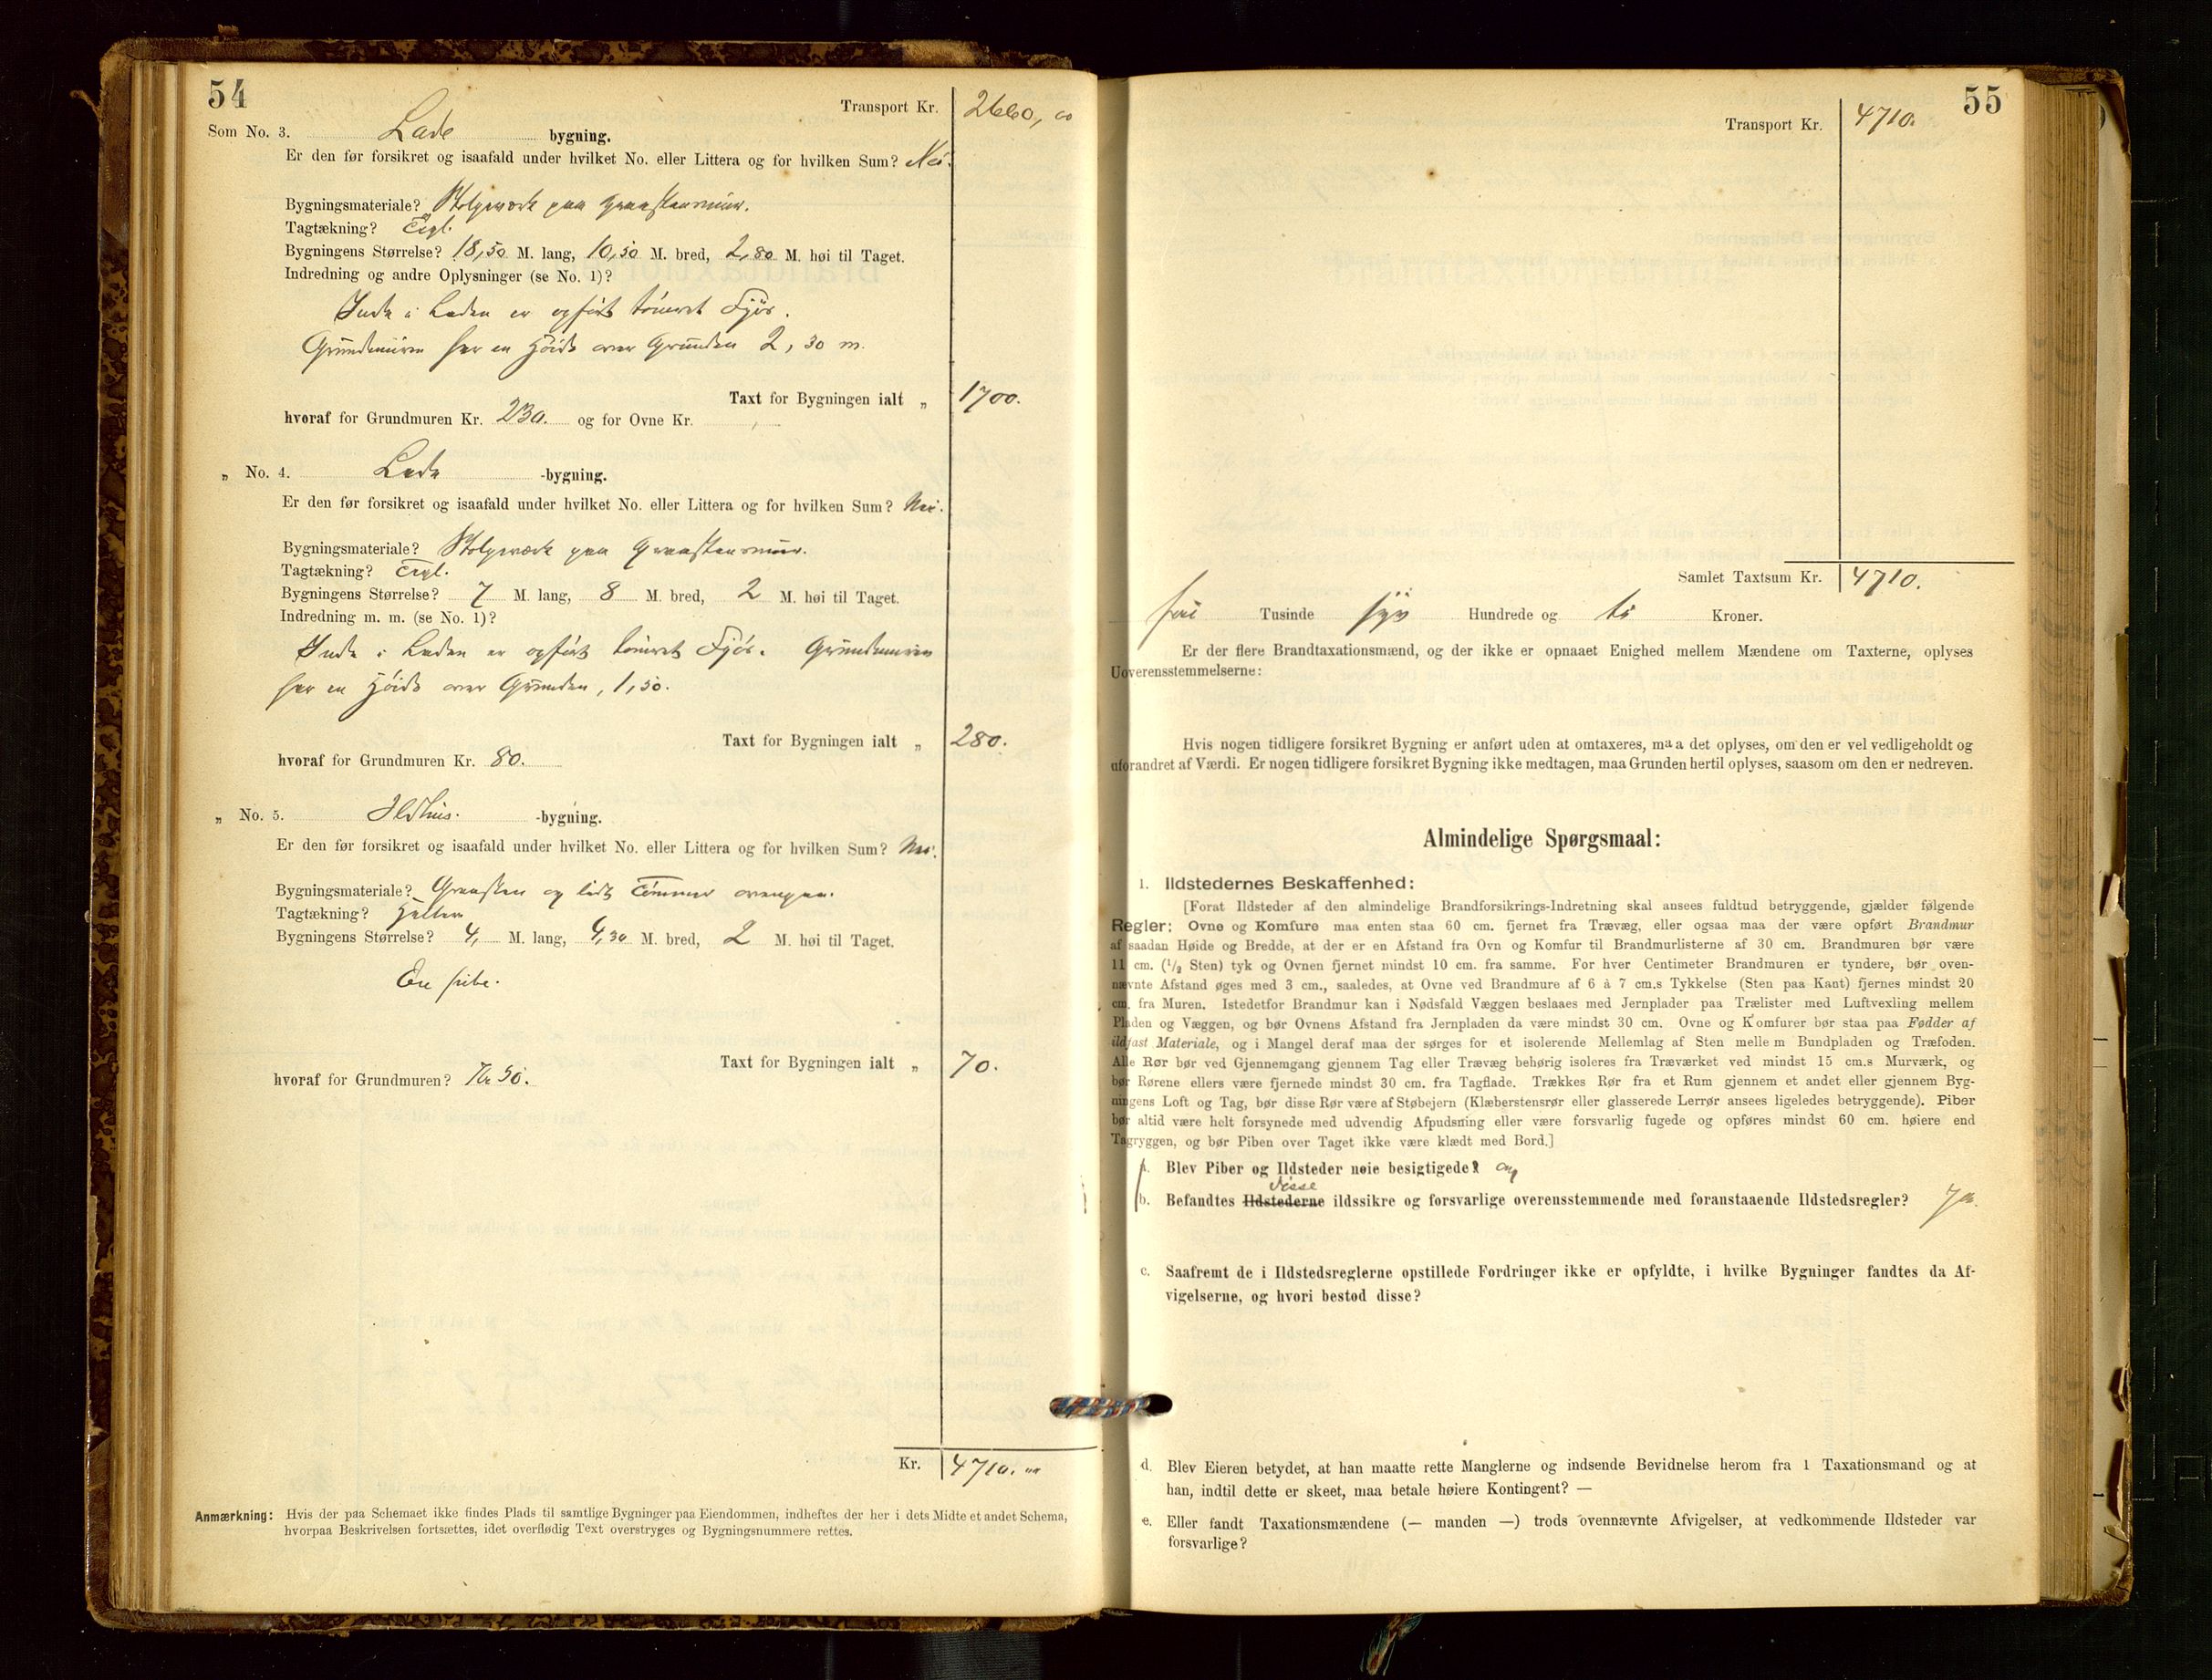 54
Transport Kr. 2660, 00
Som No. 3. Lade bygning.
Er den før forsikret og isaafald under hvilket No. eller Littera og for hvilken Sum? Nei.
Bygningsmateriale? Stolpverk paa Graastensmuur.
Tagtækning? Tegl.
Bygningens Størrelse? 18,50 M. lang, 10,50 M. bred, 2,80 M. høi til Taget.
Indredning og andre Oplysninger (se No. 1)?
Inde i Laden er opført tømret Fjös.
Grundmuren har en Høide over Grunden 2,30 m.
Taxt for Bygningen ialt „ 1700.
hvoraf for Grundmuren Kr. 230. og for Ovne Kr.
„ No. 4. Lade -bygning.
Er den før forsikret og isaafald under hvilket No. eller Littera og for hvilken Sum? Nei.
Bygningsmateriale? Stolpverk paa Graastensmuur.
Tagtækning? Tegl.
Bygningens Størrelse? 7 M. lang, 8 M. bred, 2 M. høi til Taget.
Indredning m. m. (se No. 1)?
Inde i Laden er opført tømret Fjös. Grundmuren
har en Høide over Grunden, 1,50.
Taxt for Bygningen ialt „ 280.
hvoraf for Grundmuren Kr. 80.
„ No. 5. Ildhus. -bygning.
Er den før forsikret og isaafald under hvilket No. eller Littera og for hvilken Sum? Nei.
Bygningsmateriale? Graasten og lidt Tömmer ovenpaa.
Tagtækning? Heller
Bygningens Størrelse? 4, M. lang, 4,30 M. bred, 2 M. høi til Taget.
En pibe.
Taxt for Bygningen ialt „ 70.
hvoraf for Grundmuren? Kr 50.
Kr. 4710.
Anmærkning: Hvis der paa Schemaet ikke findes Plads til samtlige Bygninger paa Eiendommen, indheftes der her i dets Midte et andet Schema,
hvorpaa Beskrivelsen fortsættes, idet overflødig Text overstryges og Bygningsnummere rettes.
55
Transport Kr. 4710.
Samlet Taxtsum Kr. 4710.
fire Tusinde syv Hundrede og ti Kroner.
Er der flere Brandtaxationsmænd, og der ikke er opnaaet Enighed mellem Mændene om Taxterne, oplyses
Uoverensstemmelserne:
Hvis nogen tidligere forsikret Bygning er anført uden at omtaxeres, maa det oplyses, om den er vel vedligeholdt og
uforandret af Værdi. Er nogen tidligere forsikret Bygning ikke medtagen, maa Grunden hertil oplyses, saasom om den er nedreven.
Almindelige Spørgsmaal:
1. Ildstedernes Beskaffenhed:
[Forat Ildsteder af den almindelige Brandforsikrings-Indretning skal ansees fuldtud betryggende, gjælder følgende
Regler: Ovne og Komfure maa enten staa 60 cm. fjernet fra Trævæg, eller ogsaa maa der være opført Brandmur
af saadan Høide og Bredde, at der er en Afstand fra Ovn og Komfur til Brandmurlisterne af 30 cm. Brandmuren bør være
11 cm. (1/2 Sten) tyk og Ovnen fjernet mindst 10 cm. fra samme. For hver Centimeter Brandmuren er tyndere, bør oven-
nævnte Afstand øges med 3 cm., saaledes, at Ovne ved Brandmure af 6 à 7 cm.s Tykkelse (Sten paa Kant) fjernes mindst 20
cm. fra Muren. Istedetfor Brandmur kan i Nødsfald Væggen beslaaes med Jernplader paa Trælister med Luftvexling mellem
Pladen og Væggen, og bør Ovnens Afstand fra Jernpladen da være mindst 30 cm. Ovne og Komfurer bør staa paa Fødder af
ildfast Materiale, og i Mangel deraf maa der sørges for et isolerende Mellemlag af Sten mellem Bundpladen og Træfoden.
Alle Rør bør ved Gjennemgang gjennem Tag eller Trævæg behørig isoleres fra Træværket ved mindst 15 cm.s Murværk, og
bør Rørene ellers være fjernede mindst 30 cm. fra Tagflade. Trækkes Rør fra et Rum gjennem et andet eller gjennem Byg-
ningens Loft og Tag, bør disse Rør være af Støbejern (Klæberstensrør eller glasserede Lerrør ansees ligeledes betryggende). Piber
bør altid være helt forsynede med udvendig Afpudsning eller være forsvarlig fugede og opføres mindst 60 cm. høiere end
Tagryggen, og bør Piben over Taget ikke være klædt med Bord.]
a. Blev Piber og Ildsteder nøie besigtigede? og
disse
b. Befandtes Ildstederne ildssikre og forsvarlige overensstemmende med foranstaaende Ildstedsregler? Ja.
c. Saafremt de i Ildstedsreglerne opstillede Fordringer ikke er opfyldte, i hvilke Bygninger fandtes da Af-
vigelserne, og hvori bestod disse?
d. Blev Eieren betydet, at han maatte rette Manglerne og indsende Bevidnelse herom fra 1 Taxationsmand og at
han, indtil dette er skeet, maa betale høiere Kontingent? —
e. Eller fandt Taxationsmændene (— manden —) trods ovennævnte Afvigelser, at vedkommende Ildsteder var
forsvarlige?